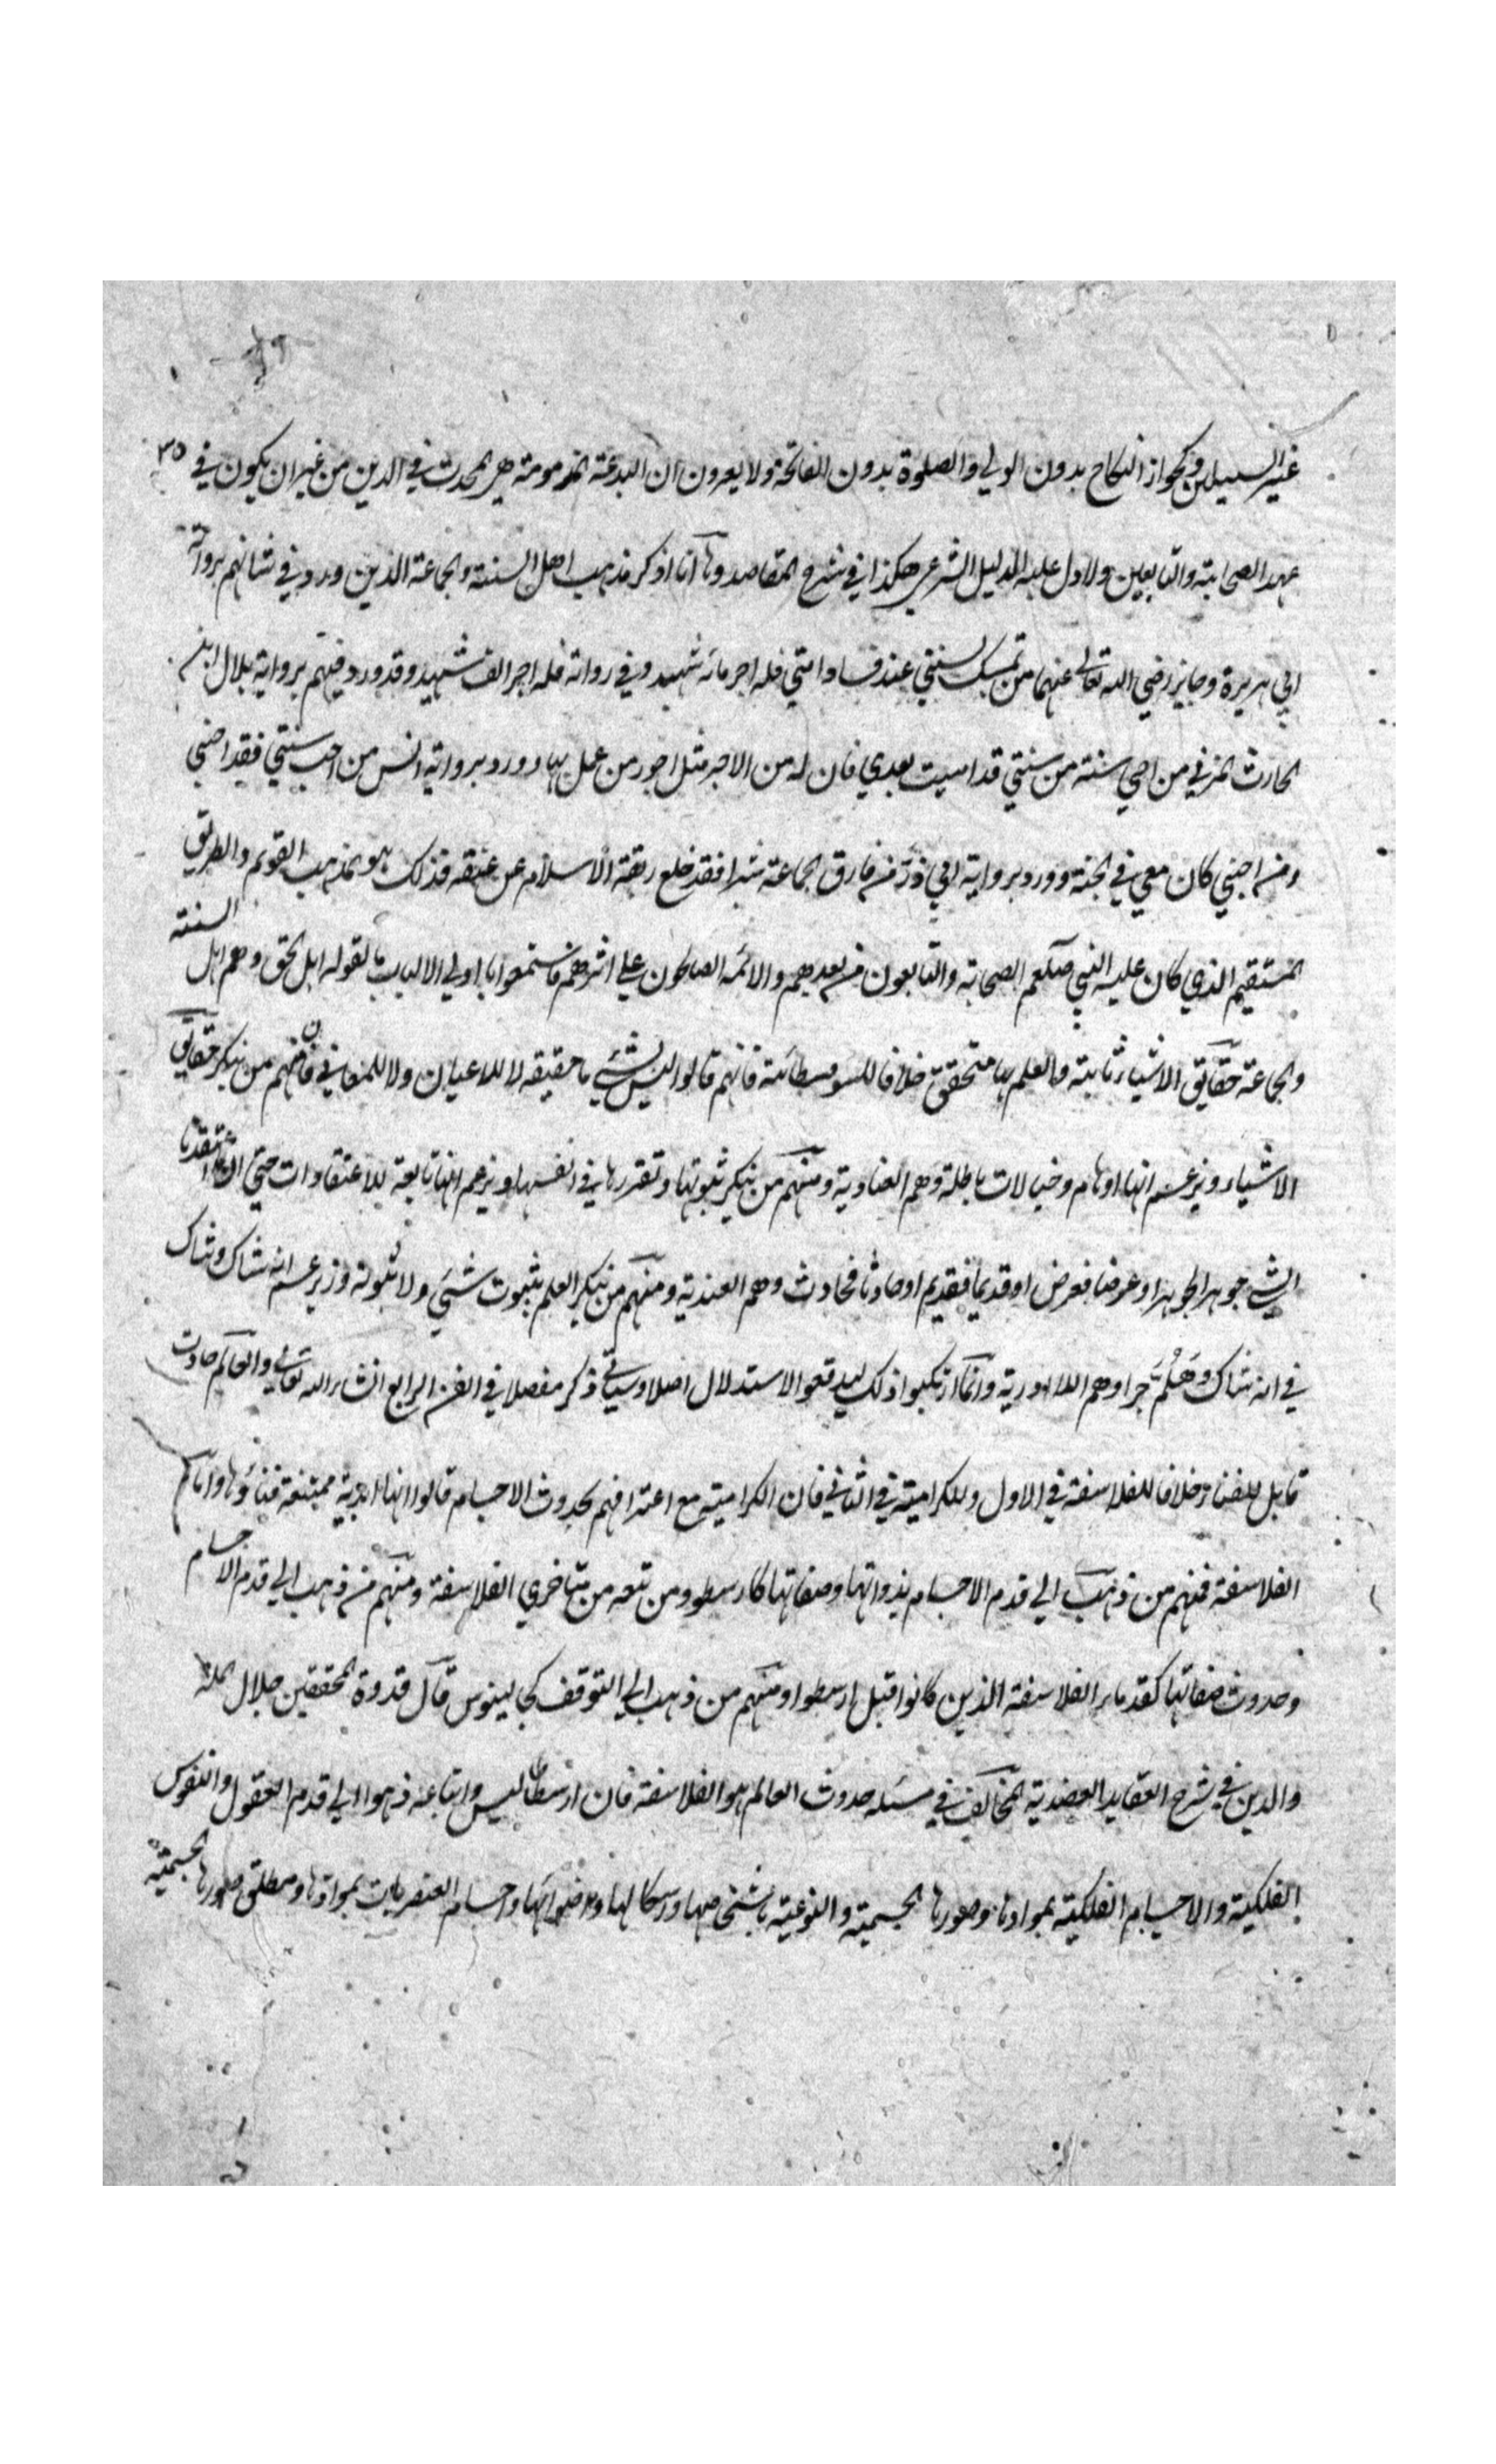 غير السبيلين وكجواز النكاح بدون الولي والصلوة بدون الفاتحة ولا يعرون ان البدعة المذمومة هي المحدث في الدين من غير ان يكون في ٣٥
عهد الصحابة والتابعين ولا دل عليه الدليل الشرعي هكذا في شرح المقاصد وها انا اذكر مذهب اهل السنة والجماعة الذين ورد في شانهم برواية
ابي هريرة وجابر رضي الله تعالى عنهما من تمسك بسنتي عند فساد امتي فله اجر مائة شهيد وفي رواية فله اجر الف شهيد وقد ورد فيهم برواية بلال ابن
الحارث المزني من احيى سنة من سنتي قد اميت بعدي فان له من الاجر مثل اجور من عمل بها وورد برواية انس من احب سنتي فقد احبني
ومن احبني كان معي في الجنة وورد برواية ابي ذر من فارق الجماعة شبرا فقد خلع ربقة الاسلام عن عنقه فذلك هو المذهب القويم والطريق
المستقيم الذي كان عليه النبي صلعم الصحابة والتابعون من بعدهم والائمة الصالحون على اثرهم فاستمعوا يا اولي الالباب ما تقوله اهل الحق وهم اهل السنة
والجماعة حقايق الاشياء ثابتة والعلم بها متحقق خلافا للسوفسطائية فانهم قالوا ليس لشيء ما حقيقة لا للاعيان ولا للمعاني فان منهم من ينكر حقايق
الاشياء ويزعم انها اوهام وخيالات باطلة وهم العنادية ومنهم من ينكر ثبوتها وتقررها في انفسها ويزعم انها تابعة للاعتقادات حتى ان اعتقدنا
الشيء جوهرا فجوهرا او عرضا فعرض او قديما فقديم او حادثا فحادث وهم العندية ومنهم من ينكر العلم بثبوت شيء ولا ثبوته ويزعم انه شاك وشاك
في انه شاك وهلم جرا وهم اللاادرية وانما ارتكبوا ذلك ليدفعوا الاستدلال اصلا وسياتي ذكر مفصلا في الفن الرابع انشاء الله تعالى والعالم حادث
قابل للفناء خلافا للفلاسفة في الاول وللكرامية في الثاني فان الكرامية مع اعترافهم بحدوث الاجسام قالوا انها ابدية ممتنعة فناؤها واما
الفلاسفة فمنهم من ذهب الى قدم الاجسام بذواتها وصفاتها كارسطو ومن تبعه من متاخري الفلاسفة ومنهم من ذهب الى قدم الاجسام
وحدوث صفاتها كقدماء الفلاسفة الذين كانوا قبل ارسطو ومنهم من ذهب الى التوقف كجالينوس قال قدوة المحققين جلال الملة
والدين في شرح العقايد العضدية المخالف في مسئله حدوث العالم هو الفلاسفة فان ارسطاليس واتباعه ذهبوا الى قدم العقول والنفوس
الفلكية والاجسام الفلكية بموادها وصورها الجسمية والنوعية واشكالها واضوائها واجسام العنصريات بموادها ومطلق صورها الجسمية